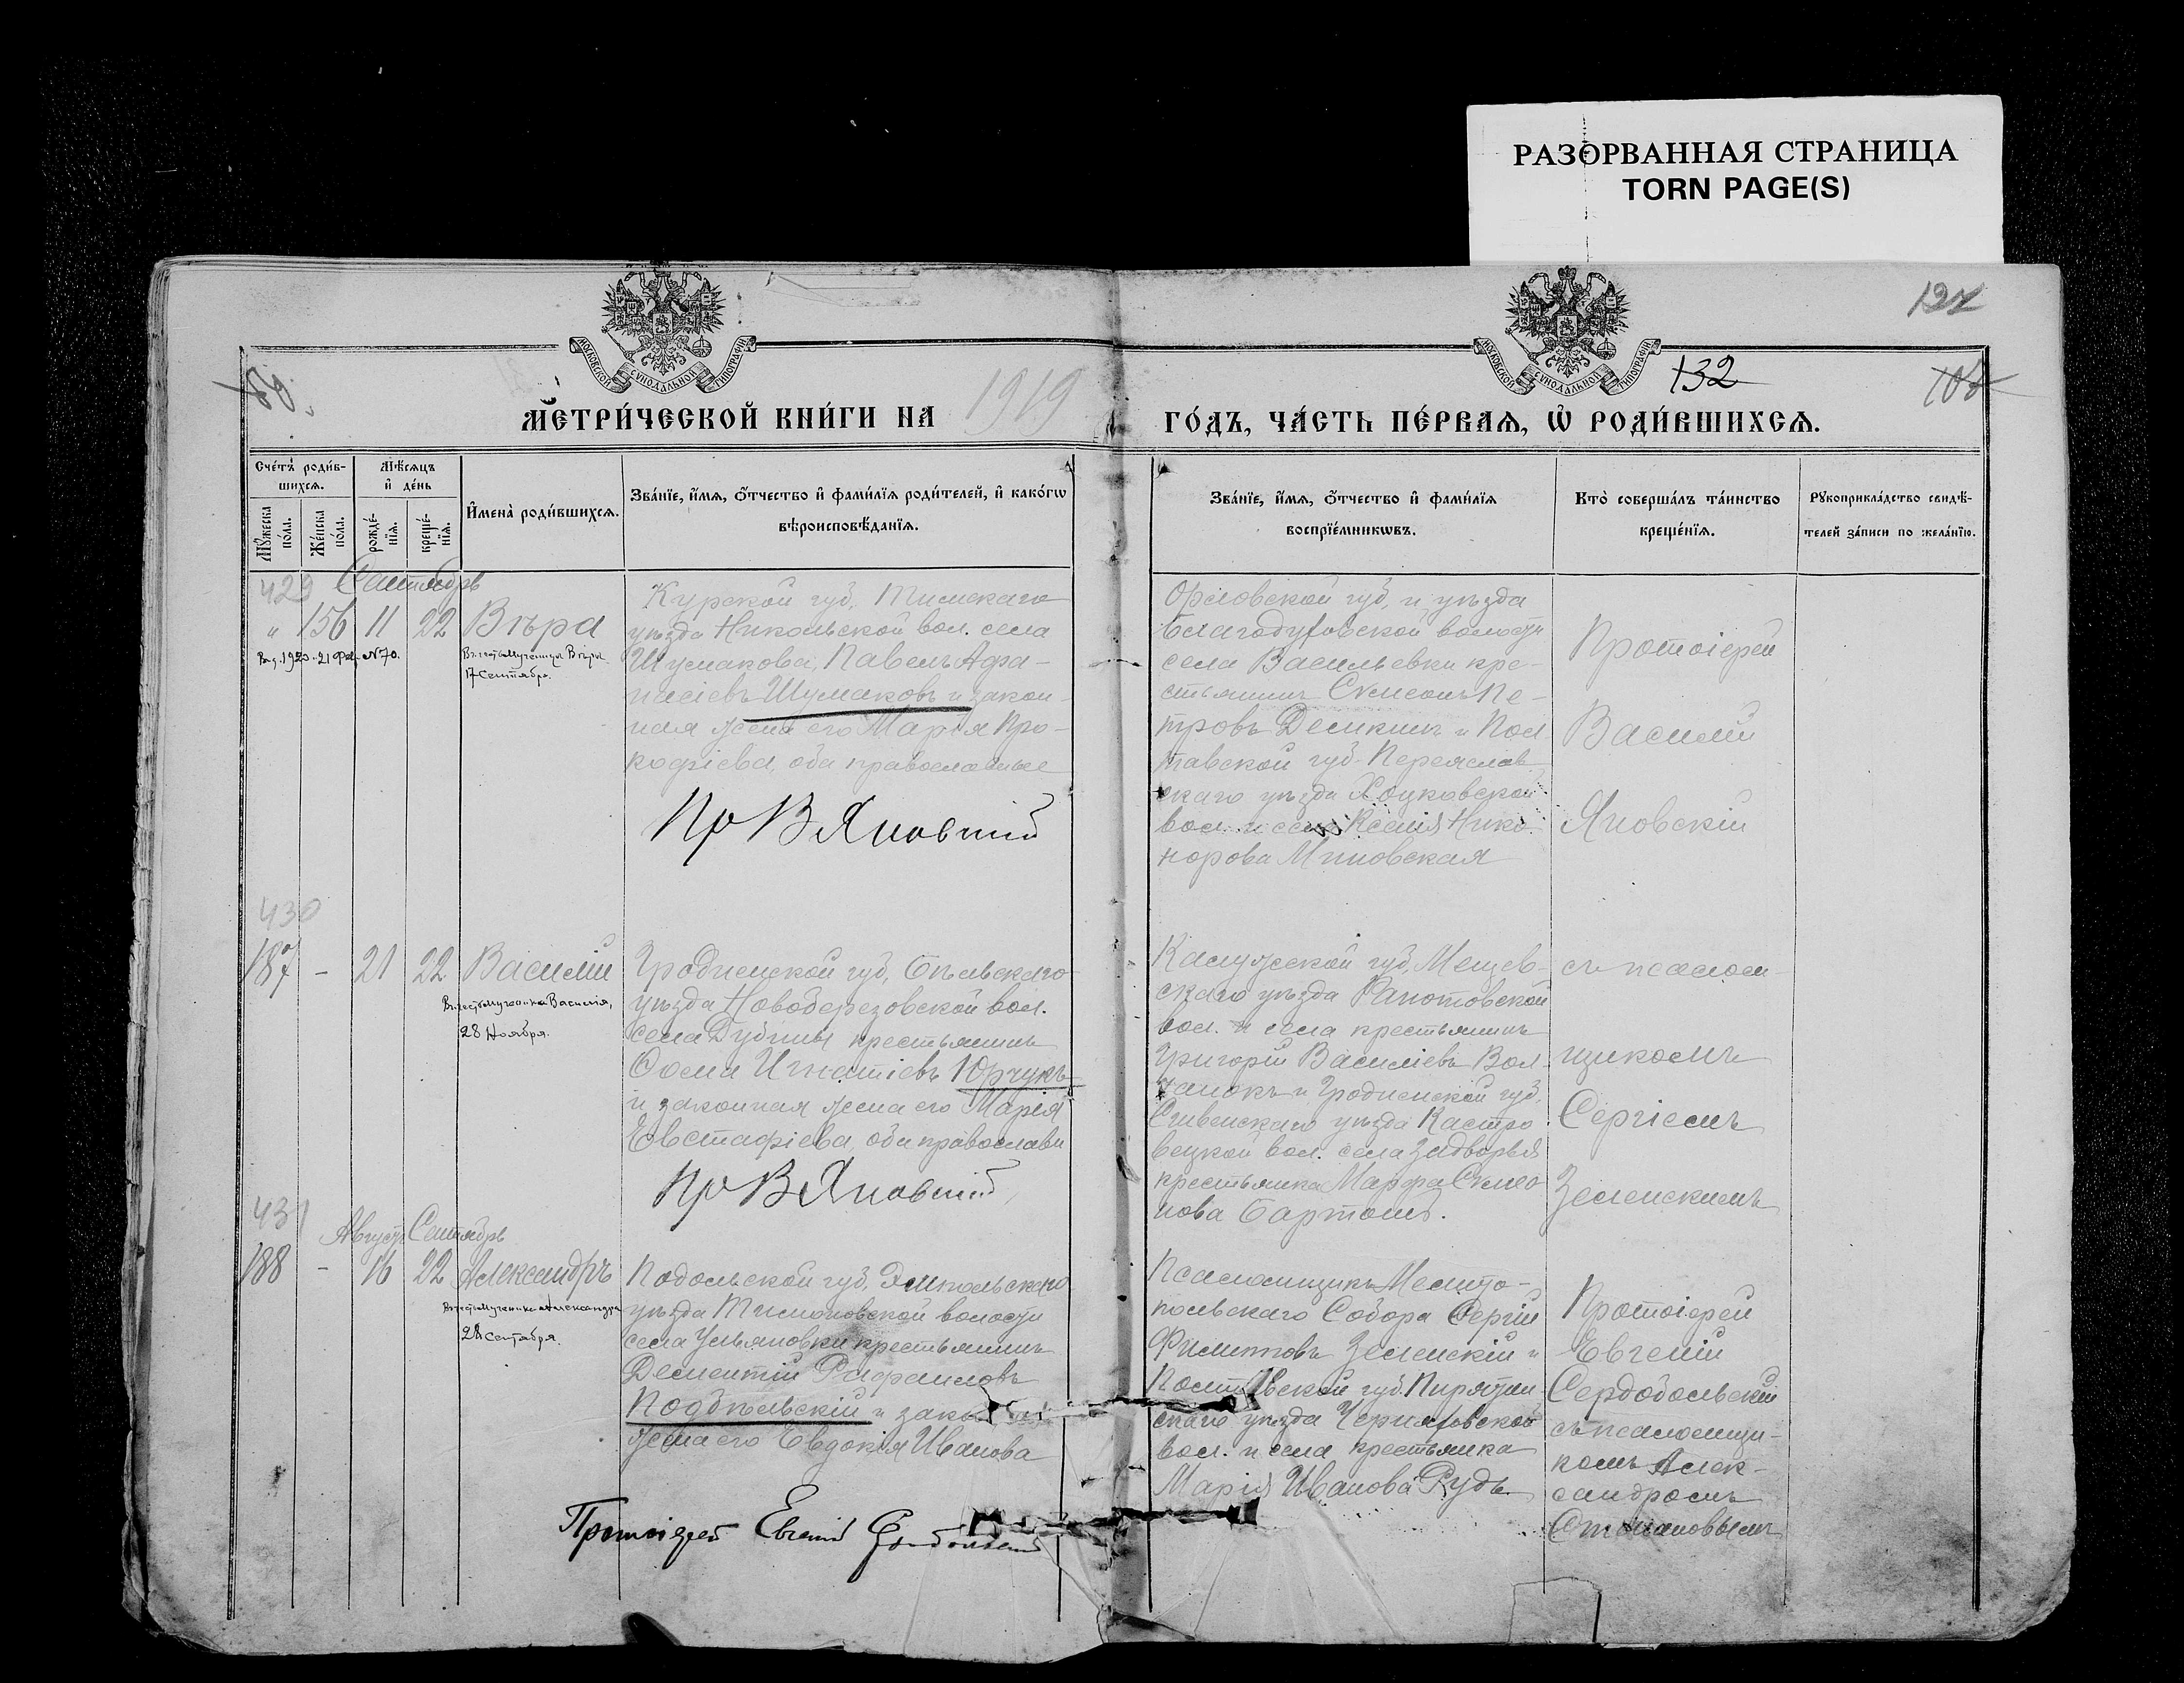 РАЗОРВАННАЯ СТРАНИЦА
TORN PAGE(S)
127
МОСКОВСКОЙ СѴНОДАЛЬНОЙ ТИПОГРАФІИ
МОСКОВСКОЙ СѴНОДАЛЬНОЙ ТИПОГРАФІИ
132
МЕТРИ́ЧЕСКОЙ КНИ́ГИ НА 1919 ГО́ДЪ, ЧА́СТЬ ПЕ́РВАЯ, Ѽ РОДИ́ВШИХСЯ.
Сче́тъ роди́в-
шихся.
Мѣ́сяцъ
и҆ де́нь
Мꙋ́жеска
по́ла.
Же́нска
по́ла.
рожде́-
нїя.
креще́-
нїя.
И҆мена̀ роди́вшихся.
Зва́нїе, и҆́мя, ѻ҆́тчество и҆ фами́лїя роди́телей, и҆ како́гѡ
вѣроисповѣ́данїя.
Зва́нїе, и҆́мя, ѻ҆́тчество и҆ фами́лїя
воспрїе́мникѡвъ.
Кто̀ соверша́лъ та́инство
креще́нїя.
Рꙋкоприкла́дство свидѣ́-
телей за́писи по жела́нїю.
429 Сентябрь
" 156 11 22 Вѣра
Выд. 1920. 21 Фев. № 70.
Въ честь мученицы Вѣры
17 Сентября.
Курской губ, Тимскаго
уѣзда Никольской вол. села
Шумакова, Павелъ Афа-
насіевъ Шумаковъ и закон-
ная жена его Марія Про-
кофіева, оба православные
Пр В Яновскій
Орловской губ, и уѣзда
Благодуховской волости
села Васильевки кре-
стьянинъ Сѵмеонъ Пе-
тровъ Демкинъ и Пол
тавской губ. Переяслав
скаго уѣзда Хоцковской
вол. и села Ксенія Никa
норова Миновская
Протоіерей
Василій
Яновскій
430
187 - 21 22 Василій
Въ честь мученика Василія,
28 Ноября.
Гродненской губ, Бѣльскаго
уѣзда Новоберезовской вол.
села Дубины крестьянинъ
Ѳома Игнатіевъ Юрчукъ
и законная жена его Марія
Евстафіева оба православн
Пр В Яновскій
Калужской губ, Мещев-
скаго уѣзда
вол. и села крестьянинъ
Григорій Василіевъ Вол-
и Гродненской губ,
уѣзда
вол. села Задворья
крестьянка Марфа Сѵмео
нова
съ псалом-
щикомъ
Сергіемъ
Зеленскимъ
431
Августъ Сентябрь
188 - 16 22 Александръ
Въ честь мученика Александра
28 сентября.
Подольской губ,
уѣзда Тимоновской волости
села Ульяновки крестьянинъ
Дементій Рафаиловъ
Подбѣльскій и
жена его Евдокія Иванова
Протоіерей Евгеній Сердобольскій
Псаломщикъ Мелито-
польскаго Собора Сергій
Филипповъ Зеленскій и
Полтавской губ. Пирятин
скаго уѣзда Черняховской
вол. и села крестьянка
Марія Иванова Рудь
Протоіерей
Евгеній
Сердобольскій
съ псаломщи-
комъ Алек-
сандромъ